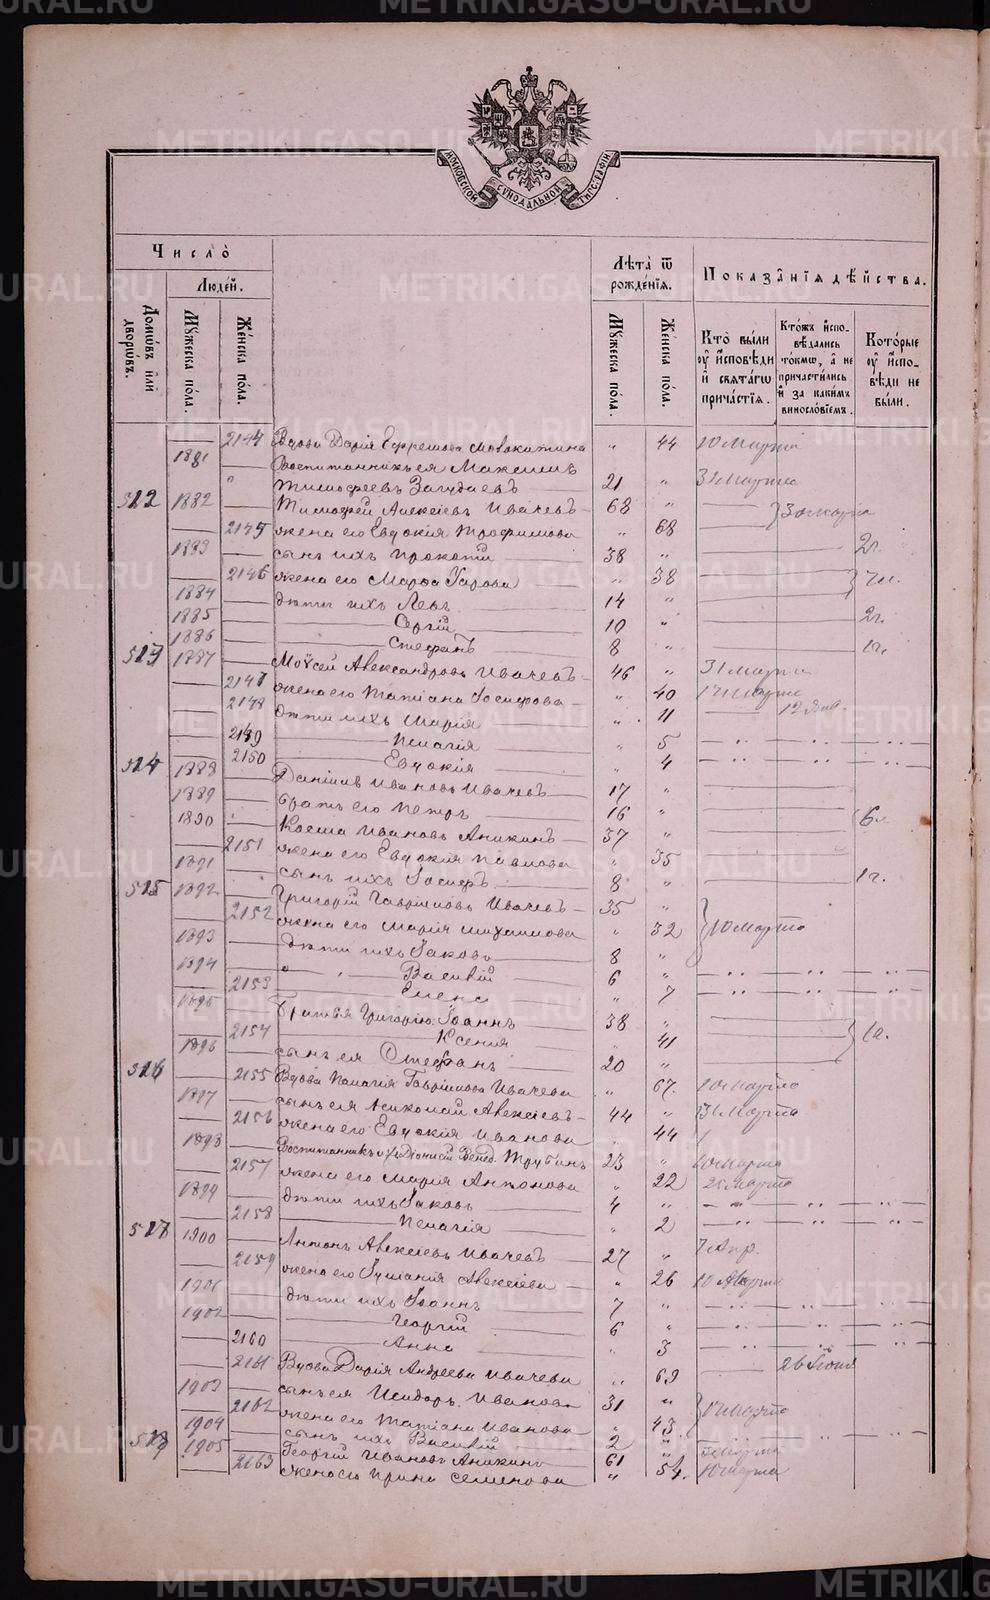 МОСКОВСКОЙ СѴНОДАЛЬНОЙ ТИПОГРАФІИ
Число̀
Людéй.
Домѡ́въ и҆лѝ дворѡ́въ.
Мꙋ́жеска по́ла.
Жéнска по́ла.
Лѣ́та ѿ рождéнїѧ.
Мꙋ́жеска по́ла.
Жéнска по́ла.
Показа̂нїѧ дѣ́йства.
Кто̀ бы́ли ᲂу҆ и҆́сповѣди и҆ свѧта́гѡ прича́стїѧ.
Кто́жъ и҆сповѣ́дались то́кмѡ, а҆ не причасти́лись и҆ за каки́мъ винослóвїемъ.
Кото́рые ᲂу҆ и҆́сповѣди не бы́ли.
2144 Вдова Дарія Ефремова 44 10 Марта
1881 Воспитанникъ ея Максимъ
Тимофеевъ 21 31 Марта
512 1882 Тимофей Алексіевъ Ивачевъ 68 30 марта
2145 жена его Евдокія Трофимова 68
1883 сынъ ихъ Прокопій 38 2г.
2146 жена его Марѳа 38
1884 дѣти ихъ Левъ 14
1885 Сергій 10 2г.
1886 Стефанъ 8 1г.
513 1887 Моѵсей Александровъ Ивачевъ 46 31 Марта
2147 жена его Татіана Іосифова 40
2148 дѣти ихъ Марія 11 12 Янв.
2149 Пелагія 5
2150 Евдокія 4
514 1888 Даніилъ Ивановъ Ивачевъ 17
1889 братъ его Петръ 16
1890 Косма Ивановъ Аникинъ 37
2151 жена его Евдокія Павлова 35
1891 сынъ ихъ Іосифъ 8 1г.
515 1892 Григорій Гавріиловъ Ивачевъ 35
2152 жена его Марія Михаилова 32 10 Марта
1893 дѣти ихъ Іаковъ 8
1894 Василій 6
2153 Елена 7
1895 Братья Григорію: Іоаннъ 38
2154 Ксения 41
1896 сынъ ея Стефанъ 20
516 2155 Вдова Пелагія Гавріилова Ивачева 67 10 марта
1897 сынъ ея Николай Алексіевъ 44 31 Марта
2156 жена его Евдокія Иванова 44
1898 Воспитанникъ Діонисій Трубинъ 23 10 марта
2157 жена его Марія Антонова 22 25 Марта
1899 дѣти ихъ Іаковъ 4
2158 Пелагія 2
517 1900 Антонъ Алексіевъ Ивачевъ 27 7 Апр.
2159 жена его Іуліанія Алексіева 26
1901 дѣти ихъ Іоаннъ 7
1902 Георгій 6
2160 Анна 3
2161 Вдова Дарія Андреева Ивачева 69 26 Іюня
1903 сынъ ея Исидоръ Ивановъ 31
2162 жена его Татіана Иванова 43
1904 сынъ ихъ Василій 2
518 1905 Георгій Ивановъ Аникинъ 61
2163 жена его Ирина Семенова 54 10 марта
METRIKI.GASO-URAL.RU